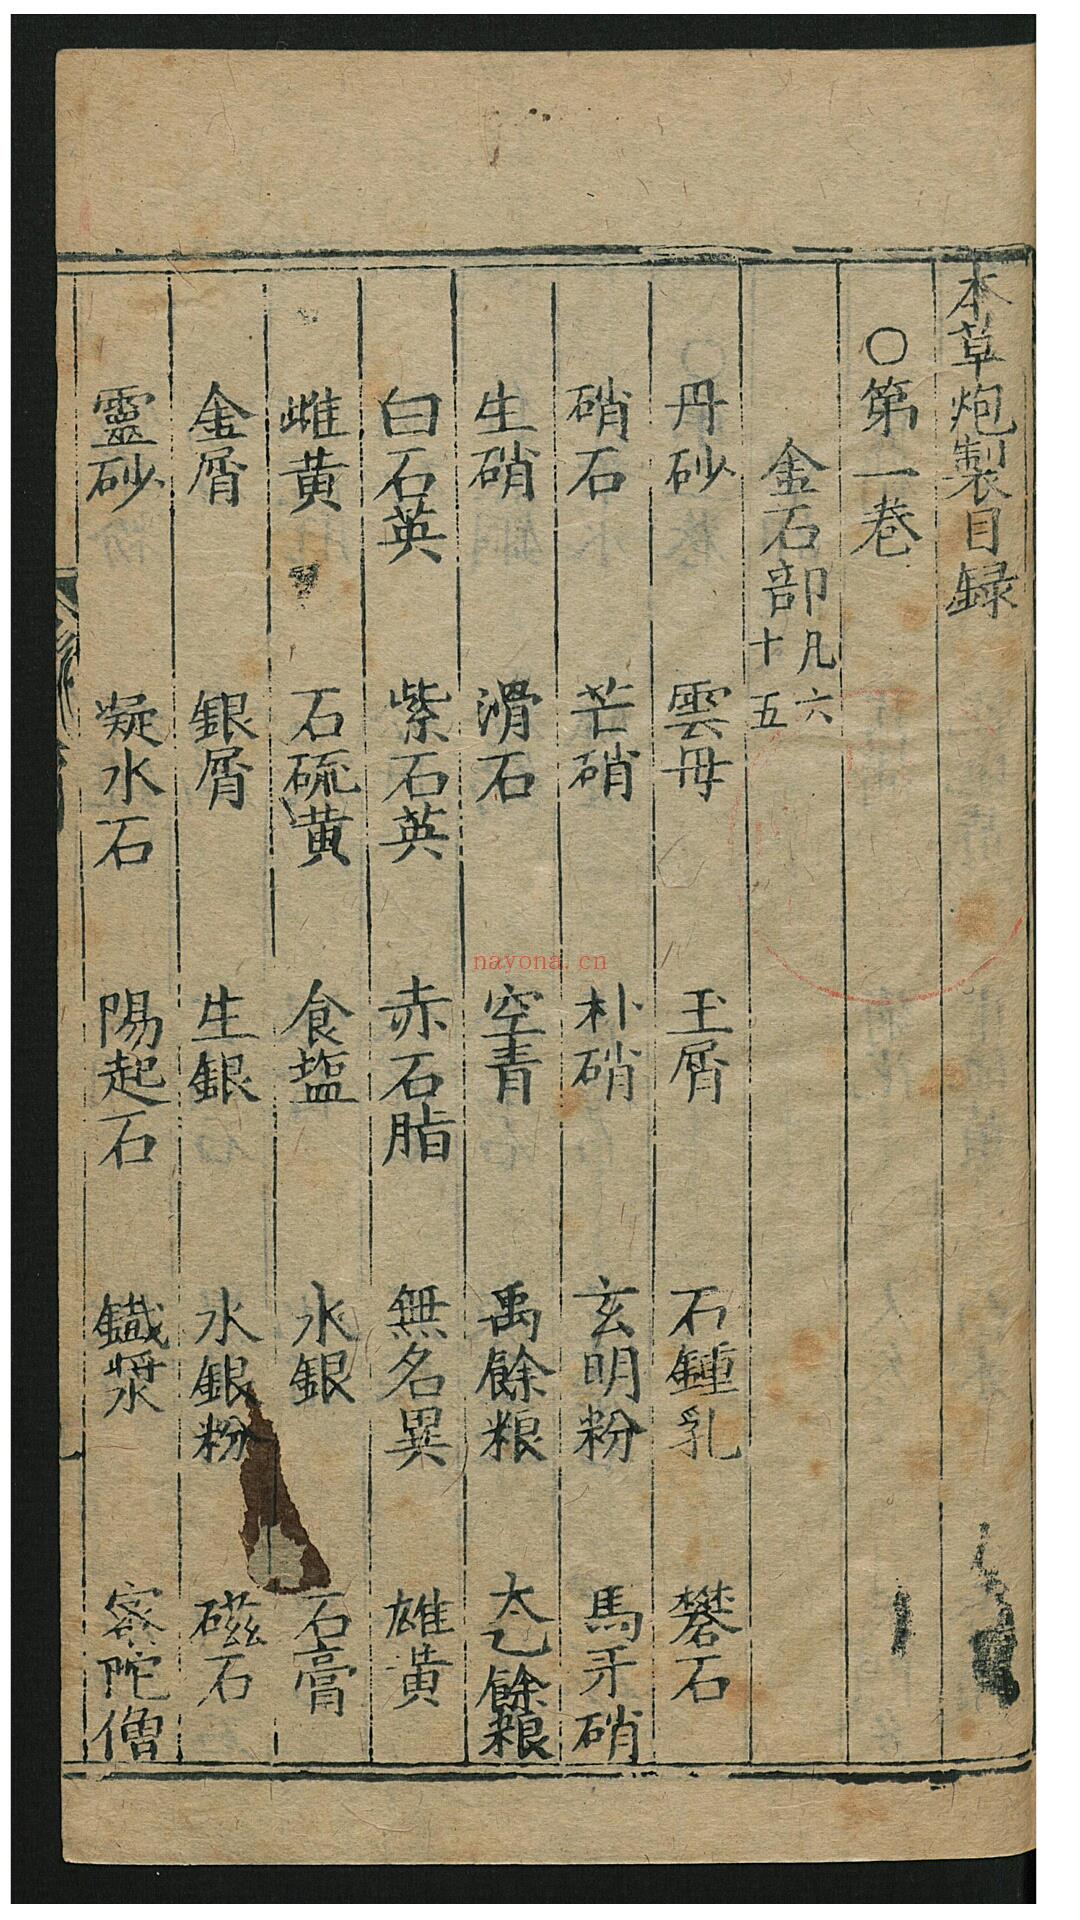 本草炮製目録
○第一巻
金石部凡六十五
丹砂 雲母 玉屑 石鍾乳 礬石
硝石 芒硝 朴硝 玄明粉 馬牙硝
生硝 滑石 空青 禹餘粮 太乙餘粮
白石英 紫石英 赤石脂 無名異 雄黄
雌黄 石硫黄 食塩 水銀 石膏
金屑 銀屑 生銀 水銀粉 磁石
靈砂 凝水石 陽起石 鐵漿 密陀僧
nayona.cn